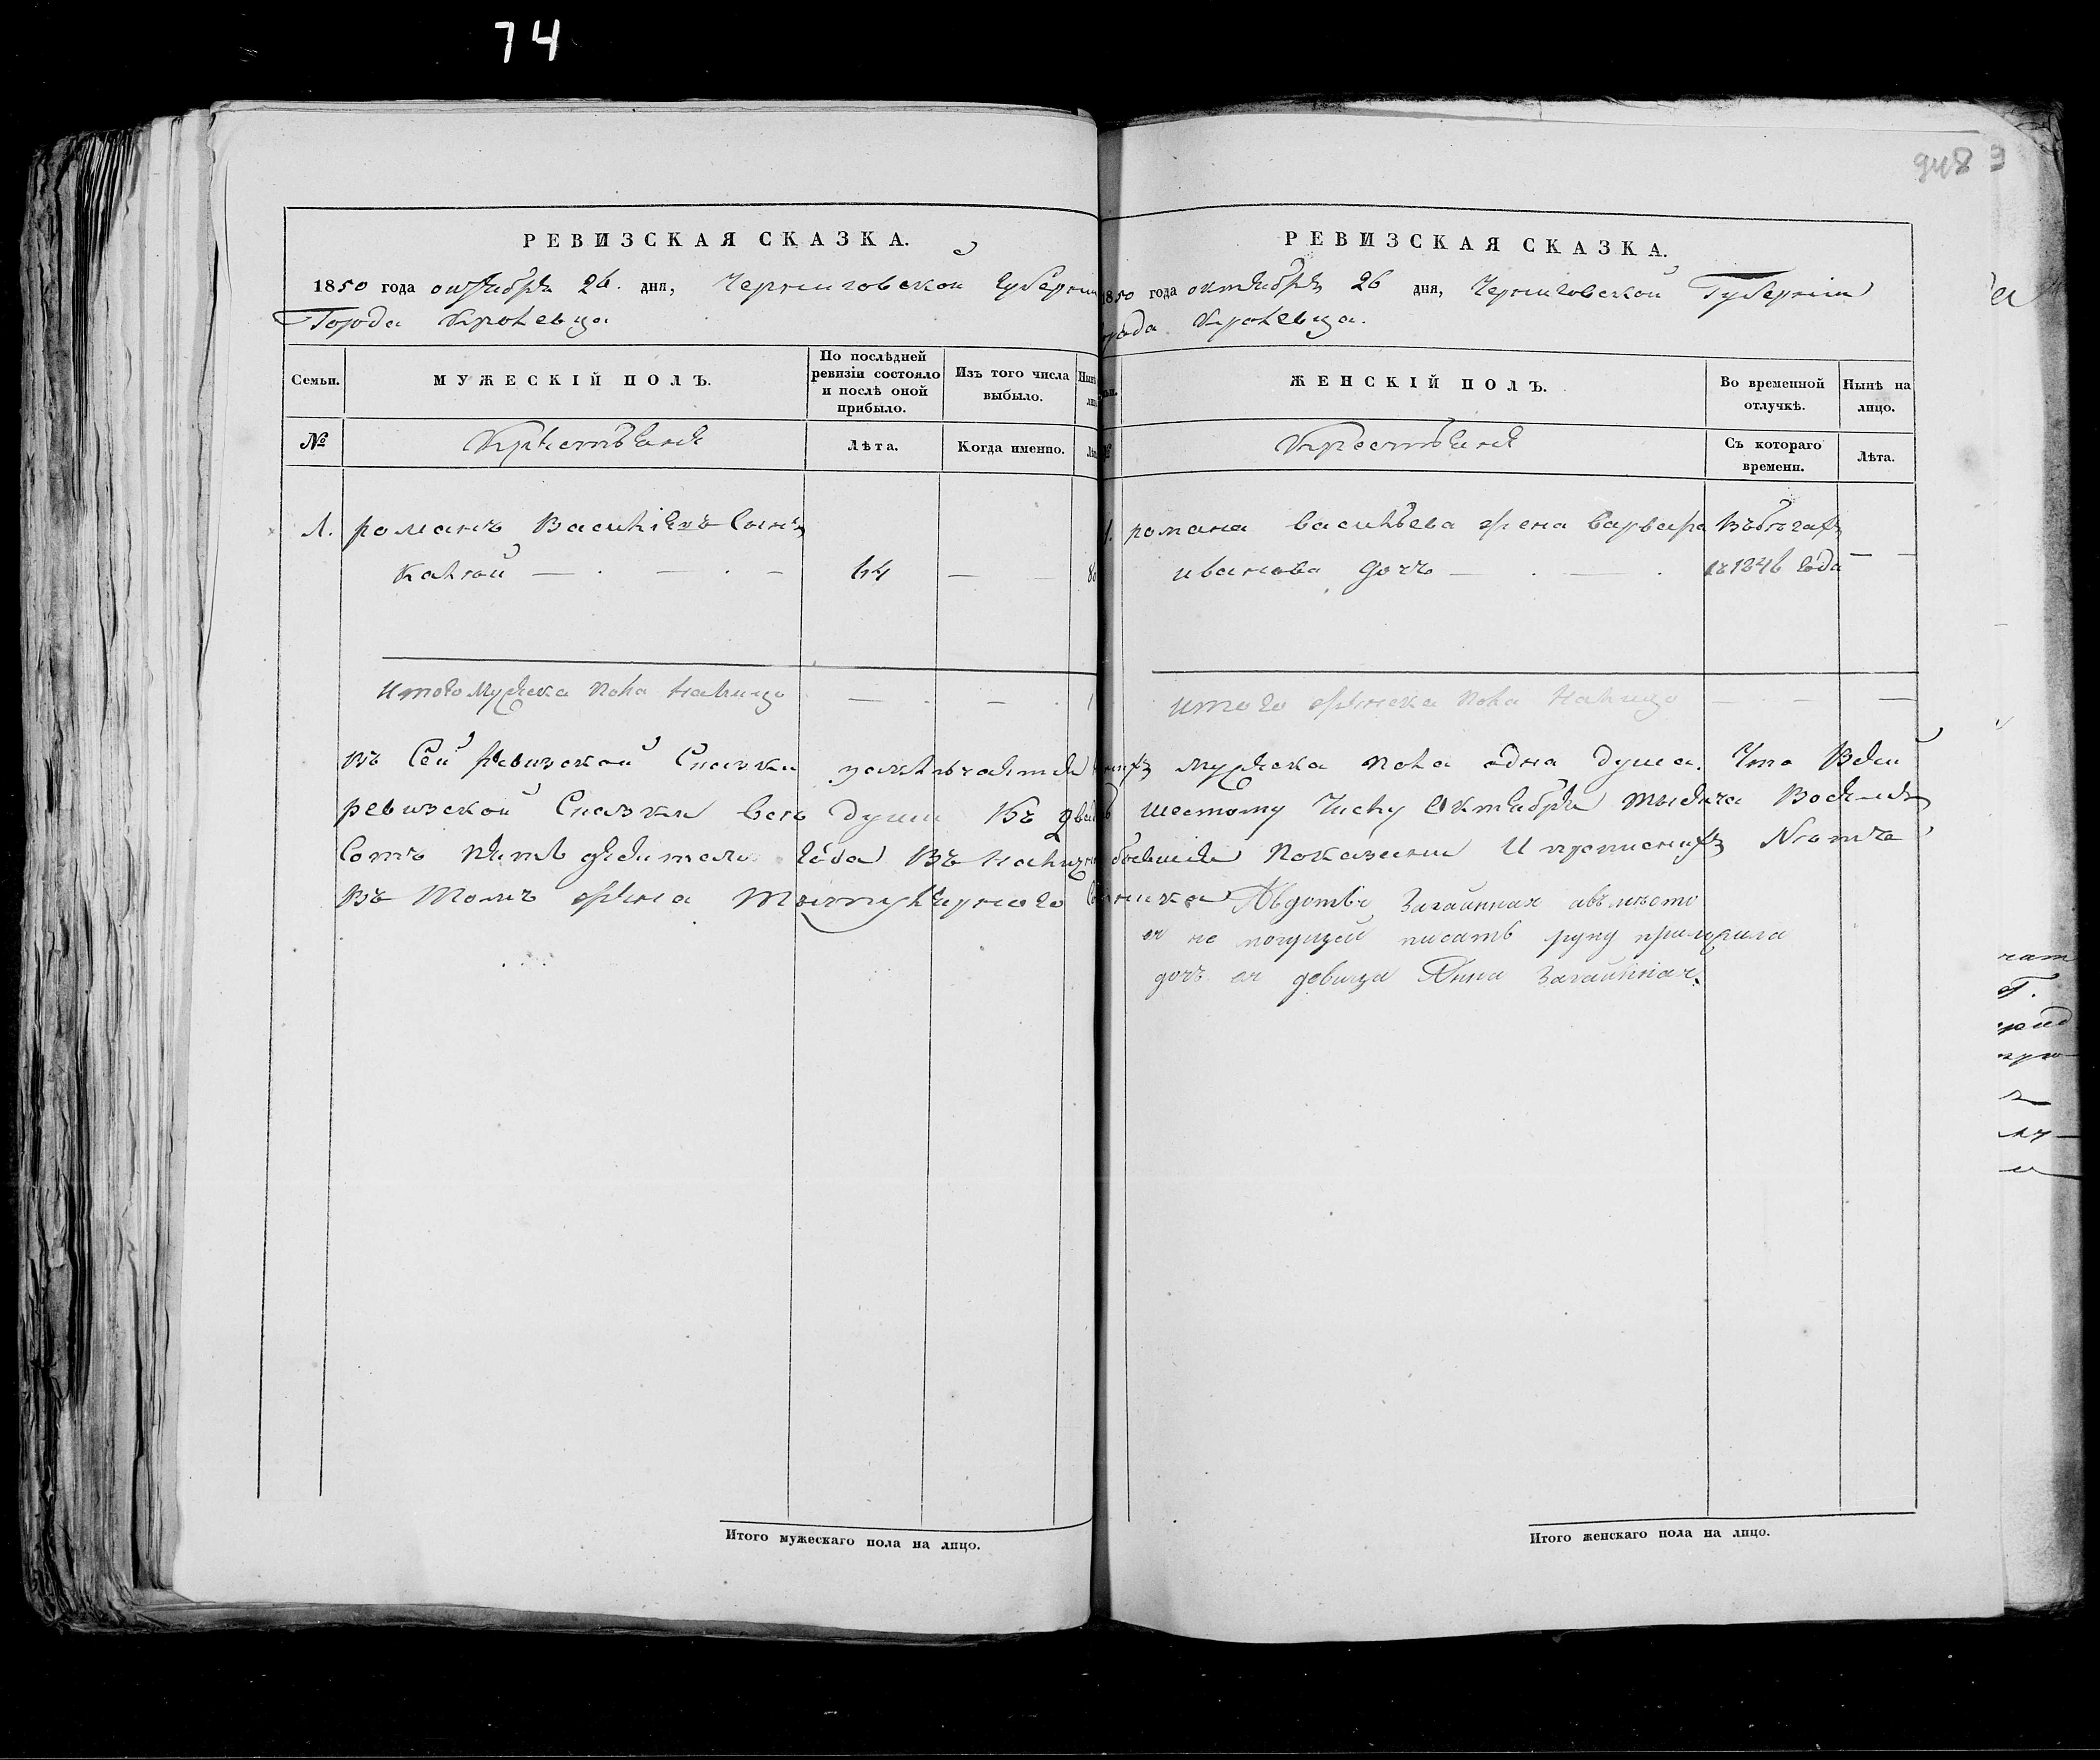 74
948 9
РЕВИЗСКАЯ СКАЗКА.
1850 года октября 26. дня, Черниговской Губерни
Города Кролевца
Семьи.
МУЖЕСКІЙ ПОЛЪ.
По послѣдней ревизіи состояло и послѣ оной прибыло.
Изъ того числа выбыло.
№
Крестьяня
Лѣта.
Когда именно.
1. романъ Василіевъ Сынъ
Калюй — . — . — 64 —
итого Мужска пола Налицо — . — . 1
Въ Сей Ревизской Сказки
ревизской Сказки Всѣ души Къ
Сотъ пять десятого года Въ
Въ Томъ жена
Итого мужескаго пола на лицо.
РЕВИЗСКАЯ СКАЗКА.
1850 года октября 26 дня, Черниговской Губерніи
орода Кролевца.
ЖЕНСКІЙ ПОЛЪ.
Во временной отлучкѣ.
Нынѣ на лицо.
№
Крестьяня
Съ котораго времени.
Лѣта.
1. романа васильева жена варвара Въбѣгахъ
иванова дочь — . — . съ 1846 года — —
итого женска пола Налицо — — —
мужска пола одна душа. Что Всей
шестому Числу Октября тысяча Восемь
Показаны И прописныхъ Нѣтъ
Авдотья Загайная авъместо
ея не могущей писать руку приложила
дочь ея девица Анна Загайная
Итого женскаго пола на лицо.